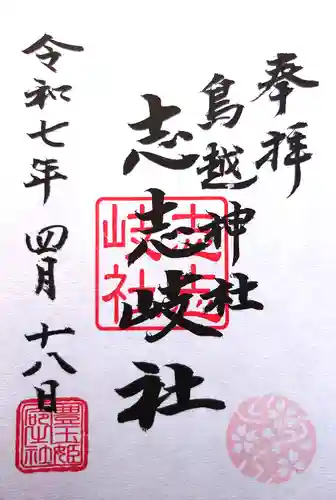 奉拝
鳥越神社
志志岐社
令和七年 四月 十八日
志志岐社
豊玉姫